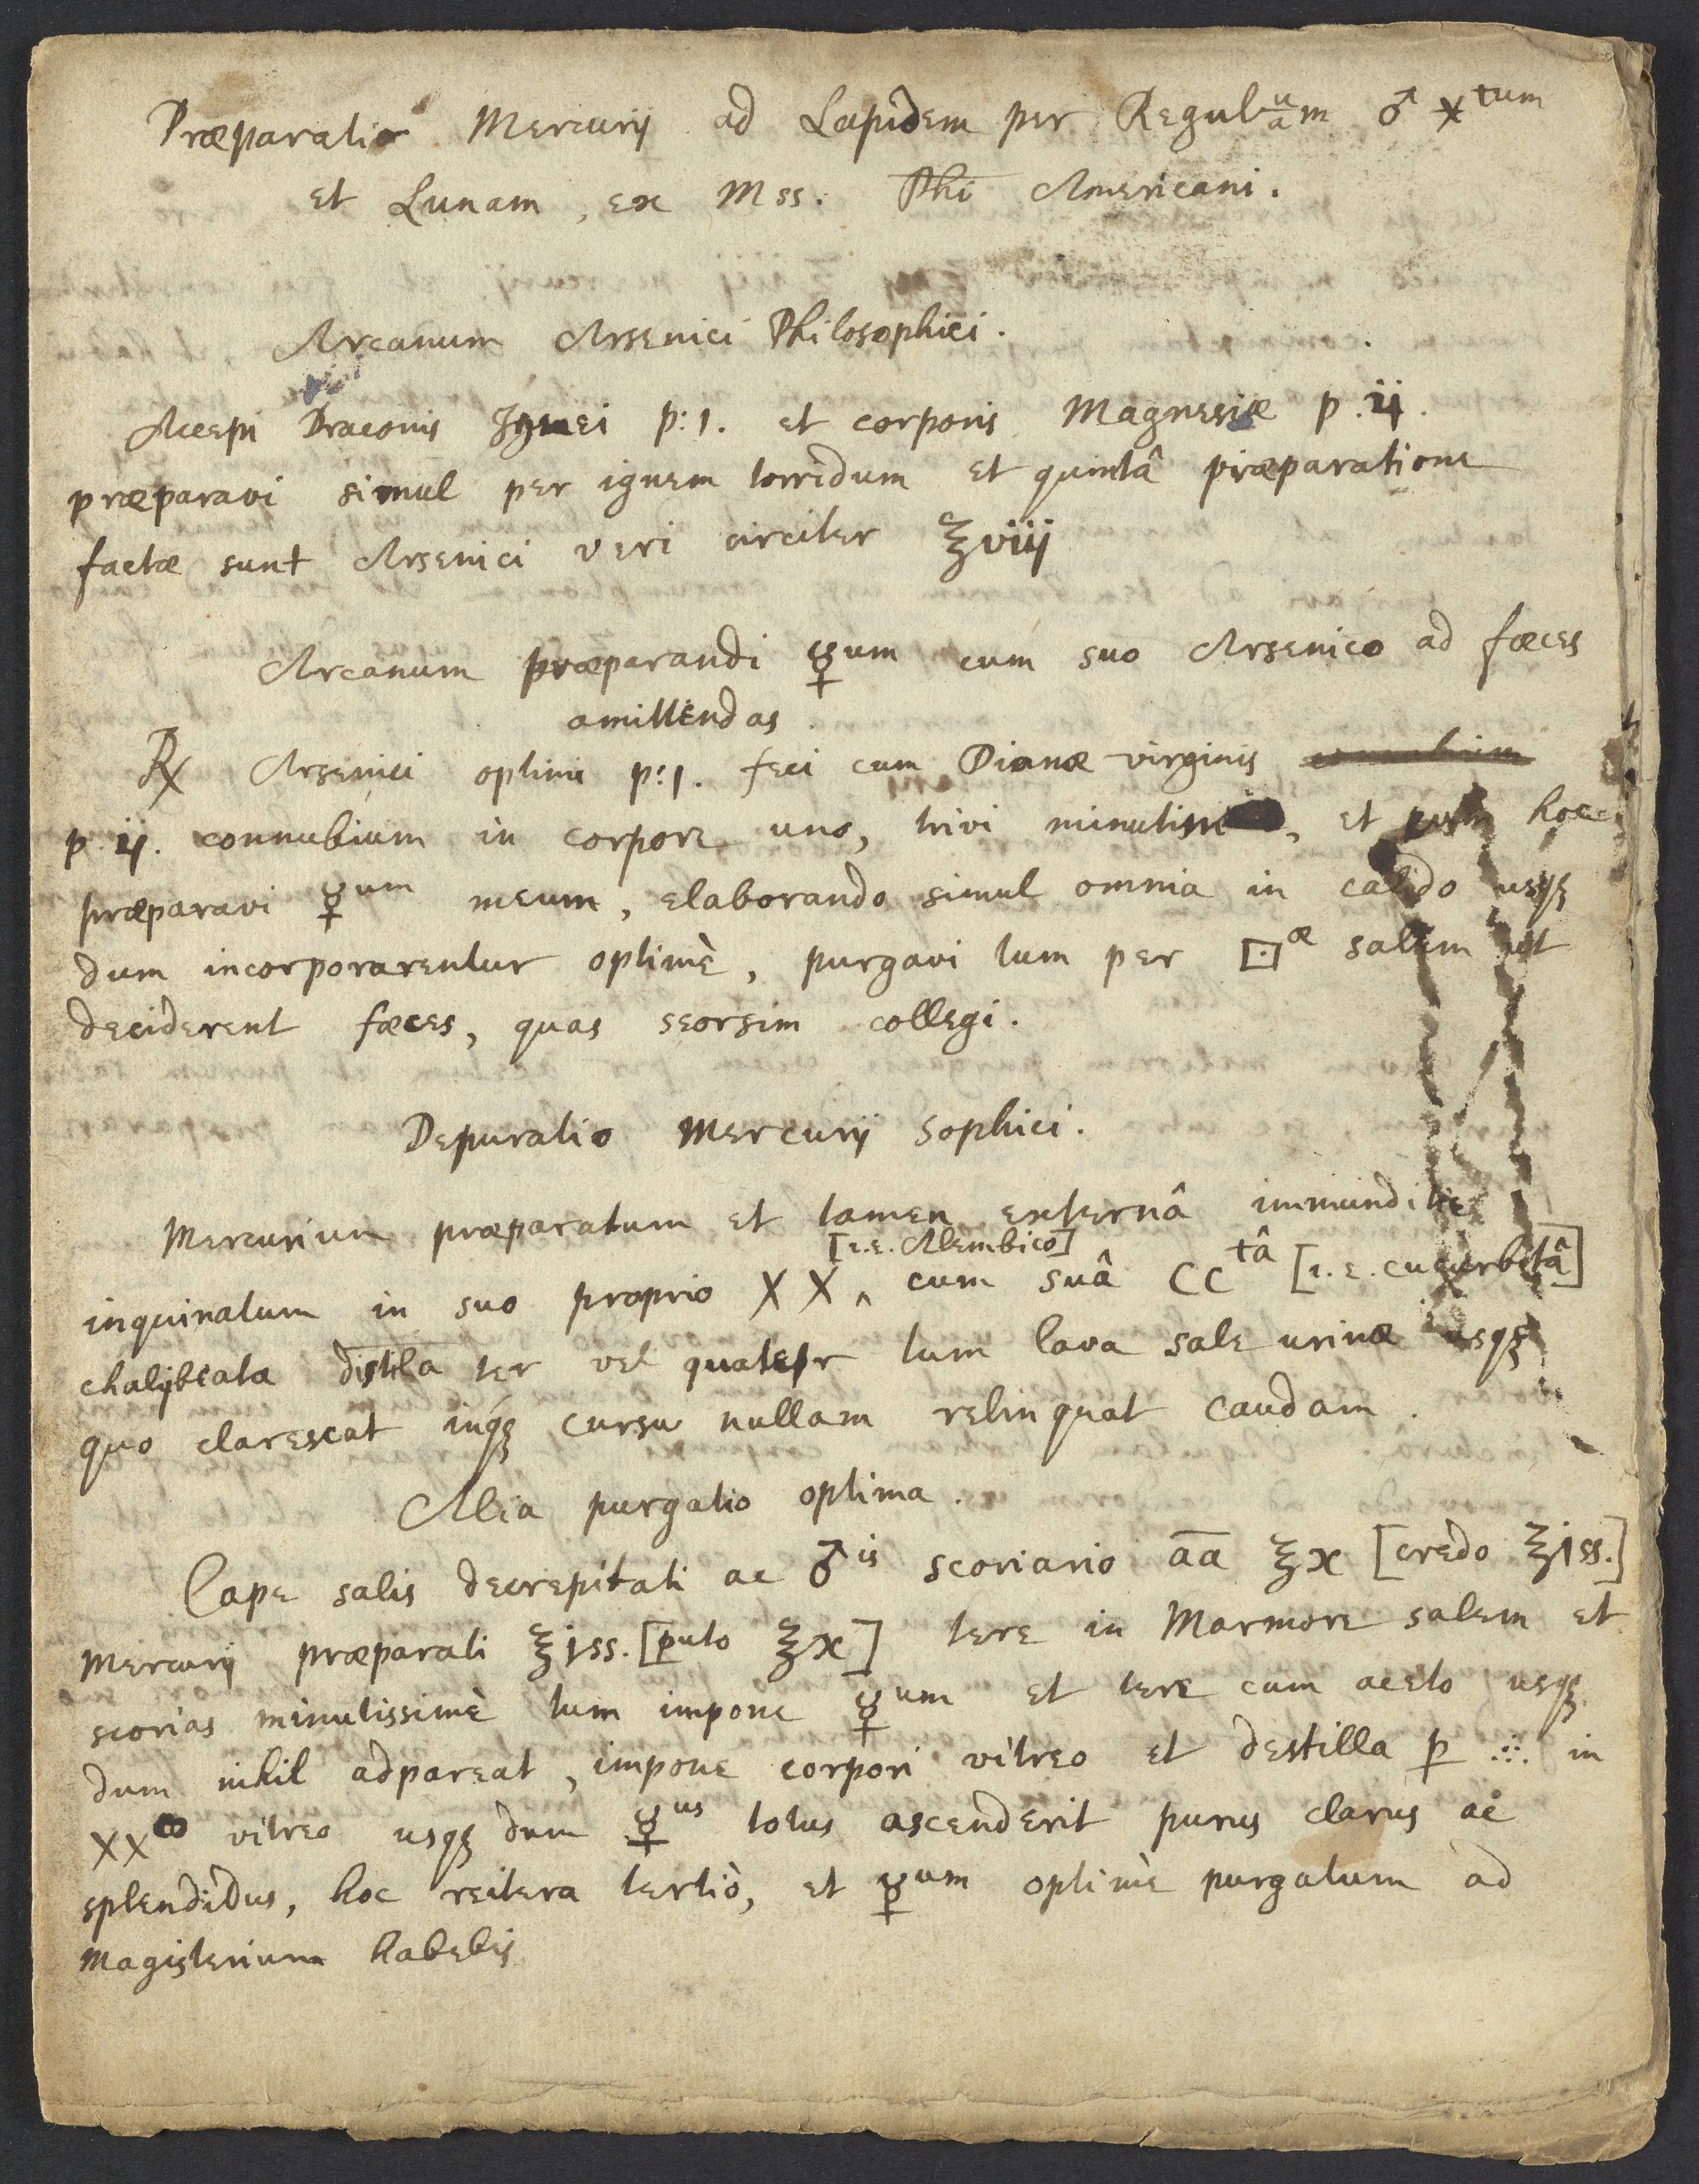 Præparatio Mercurij ad Lapidem per Regulum ♂ ⚹tum
et Lunam, ex Mss. Phi Americani.
Arcanum Arsenici Philosophici.
Accepi Draconis Ignei p:1. et corporis Magnesiæ p. ij.
præparavi simul per ignem torridum et quintâ præparatione
factæ sunt Arsenici veri circiter ℥viij
Arcanum præparandi ☿um cum suo Arsenico ad fæces
amittendas.
℞ Arsenici optimi p:1. feci cum Dianæ virginis
p ij. connubium in corpore uno, trivi minutim, et post hoc
præparavi ☿um meum, elaborando simul omnia in calido usqꝫ
dum incorporarentur optimè, purgavi tum per ⊡æ salem ut
deciderent fæces, quas seorsim collegi.
Depuratio Mercurij sophici.
Mercurium præparatum et tamen externâ immunditie
[i.e. Alembico]
inquinatum in suo proprio XX‸ cum suâ CCtâ [i.e. cucurbitâ]
chalijbeata distilla ter vel quater tum lava sale urinæ usqꝫ
quo clarescat inqꝫ cursu nullam relinquat caudam.
Alia purgatio optima.
Cape salis decrepitati ac ♂is scoriario āā ℥x [credo ℥jss.]
Mercurij præparati ℥jss. [puto ℥x] tere in Marmore salem et
scorias minutissimè tum impone ☿um et tere cum aceto usqꝫ
dum nihil adpareat, impone corpori vitreo et destilla p ∴ in
XXco vitreo usqꝫ dum ☿us totus ascenderit purus clarus ac
splendidus, hoc reitera tertiò, et ☿um optimè purgatum ad
Magisterium habebis